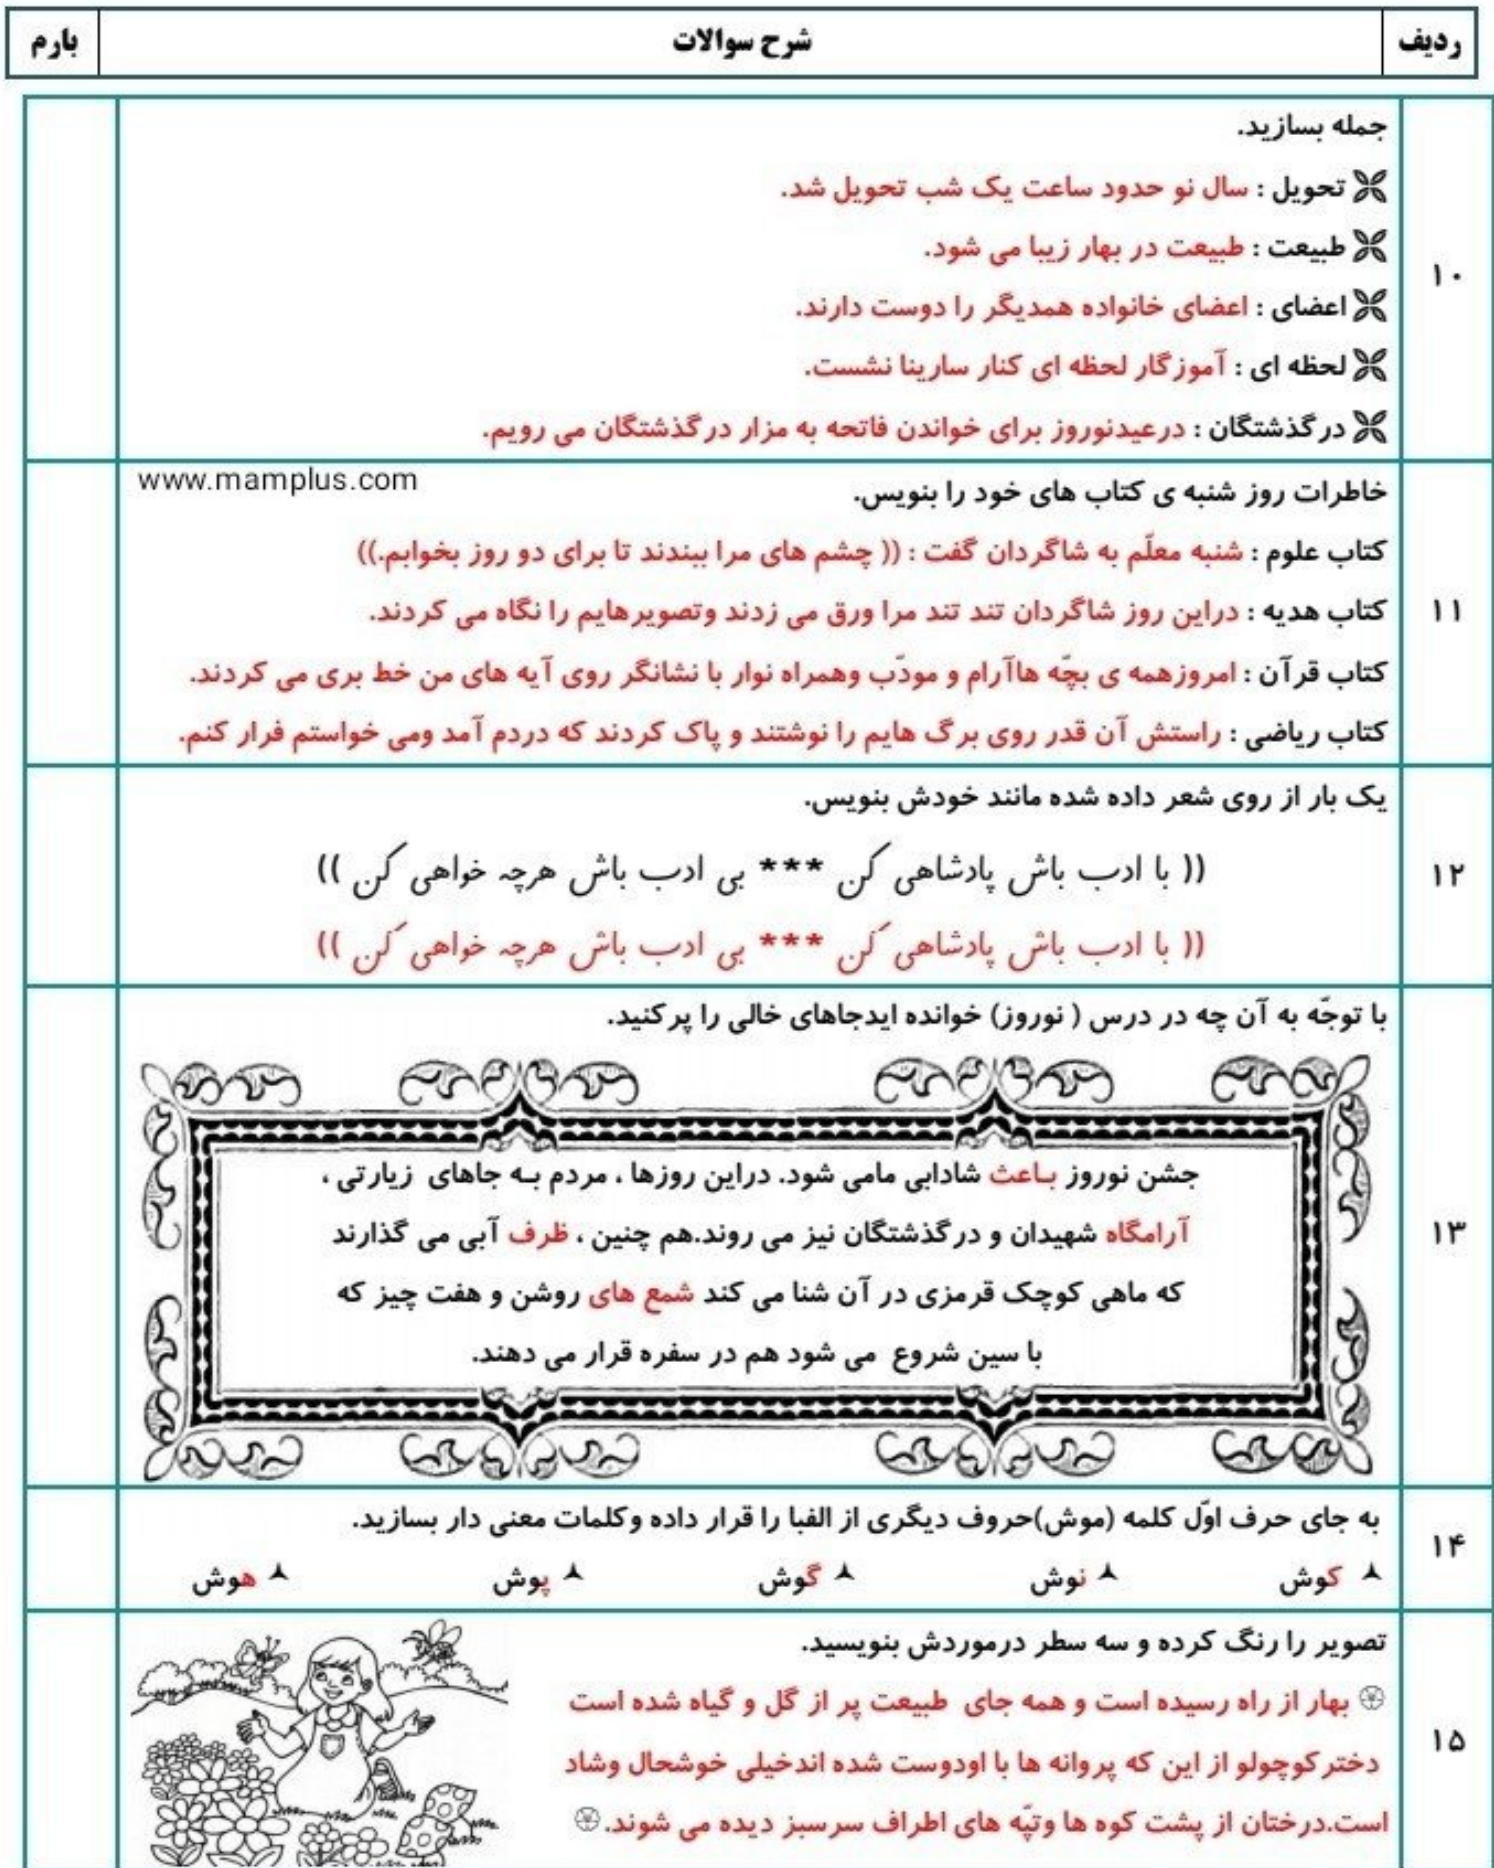 ردیف شرح سوالات بارم
۱۰
جمله بسازید.
تحویل : سال نو حدود ساعت یک شب تحویل شد.
طبیعت : طبیعت در بهار زیبا می شود.
اعضای : اعضای خانواده همدیگر را دوست دارند.
لحظه ای : آموزگار لحظه ای کنار سارینا نشست.
درگذشتگان : درعیدنوروز برای خواندن فاتحه به مزار درگذشتگان می رویم.
۱۱
www.mamplus.com
خاطرات روز شنبه ی کتاب های خود را بنویس.
کتاب علوم : شنبه معلّم به شاگردان گفت : (( چشم های مرا ببندند تا برای دو روز بخوابم.))
کتاب هدیه : دراین روز شاگردان تند تند مرا ورق می زدند وتصویرهایم را نگاه می کردند.
کتاب قرآن : امروزهمه ی بچّه هاآرام و مودّب وهمراه نوار با نشانگر روی آیه های من خط بری می کردند.
کتاب ریاضی : راستش آن قدر روی برگ هایم را نوشتند و پاک کردند که دردم آمد ومی خواستم فرار کنم.
۱۲
یک بار از روی شعر داده شده مانند خودش بنویس.
(( با ادب باش پادشاهی کن *** بی ادب باش هرچه خواهی کن ))
(( با ادب باش پادشاهی کن *** بی ادب باش هرچه خواهی کن ))
۱۳
با توجّه به آن چه در درس ( نوروز) خوانده ایدجاهای خالی را پرکنید.
جشن نوروز باعث شادابی مامی شود. دراین روزها ، مردم به جاهای زیارتی ،
آرامگاه شهیدان و درگذشتگان نیز می روند.هم چنین ، ظرف آبی می گذارند
که ماهی کوچک قرمزی در آن شنا می کند شمع های روشن و هفت چیز که
با سین شروع می شود هم در سفره قرار می دهند.
۱۴
به جای حرف اوّل کلمه (موش)حروف دیگری از الفبا را قرار داده وکلمات معنی دار بسازید.
کوش نوش گوش پوش هوش
۱۵
تصویر را رنگ کرده و سه سطر درموردش بنویسید.
بهار از راه رسیده است و همه جای طبیعت پر از گل و گیاه شده است
دخترکوچولو از این که پروانه ها با اودوست شده اندخیلی خوشحال وشاد
است.درختان از پشت کوه ها وتپّه های اطراف سرسبز دیده می شوند.